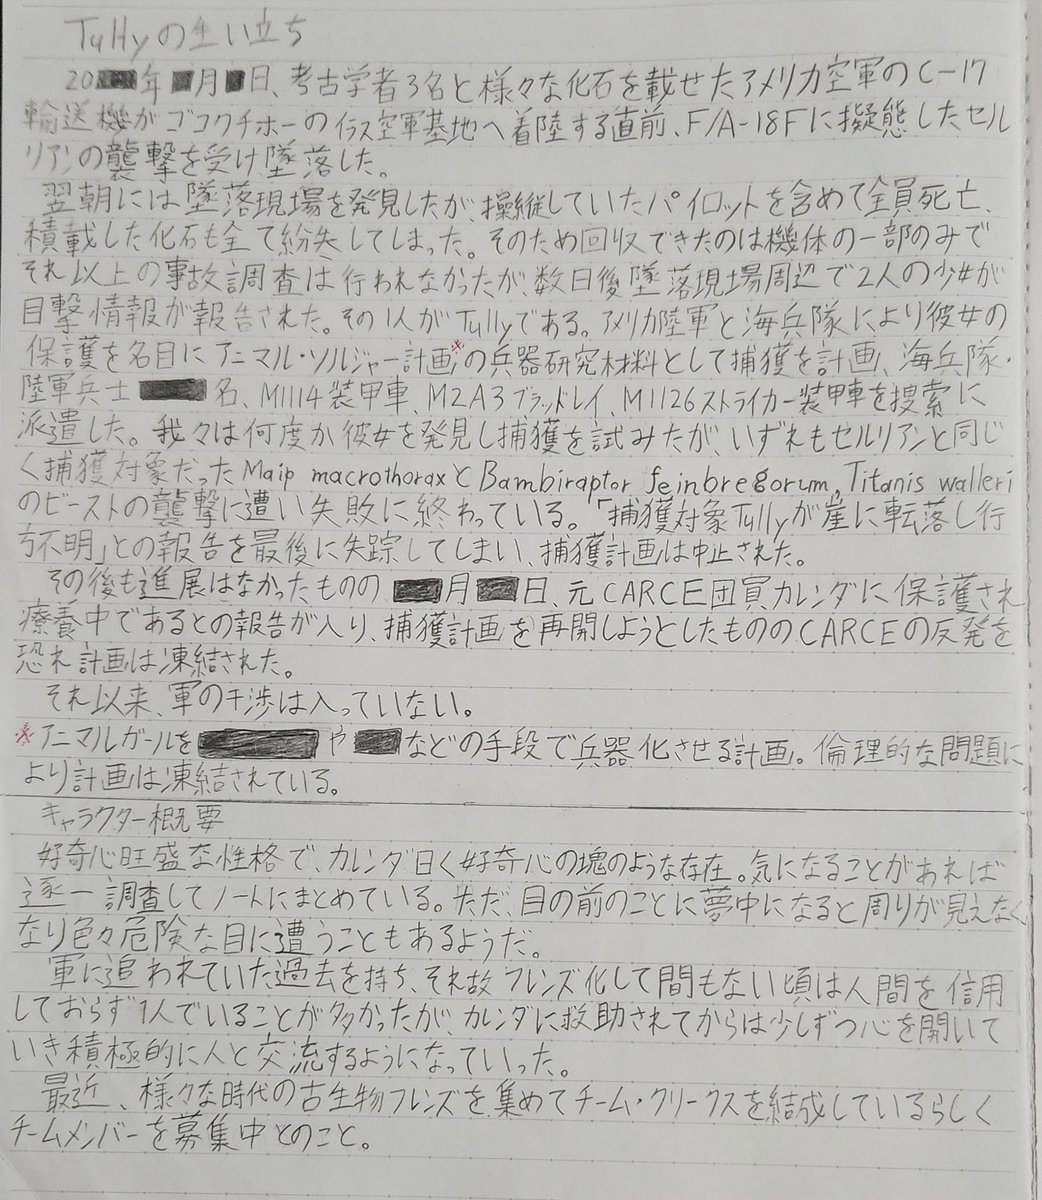 Tullyの生い立ち
20██年█月█日、考古学者3名と様々な化石を載せたアメリカ空軍のC-17
輸送機がゴコクチホーのイラス空軍基地へ着陸する直前、F/A-18Fに擬態したセル
リアンの襲撃を受け墜落した。
翌朝には墜落現場を発見したが、操縦していたパイロットを含めて全員死亡、
積載した化石も全て紛失してしまった。そのため回収できたのは機体の一部のみで
それ以上の事故調査は行われなかったが、数日後墜落現場周辺で2人の少女が
目撃情報が報告された。その1人がTullyである。アメリカ陸軍と海兵隊により彼女の
保護を名目にアニマル・ソルジャー計画※の兵器研究材料として捕獲を計画、海兵隊・
陸軍兵士███名、M1114装甲車、M2A3ブラッドレイ、M1126ストライカー装甲車を捜索に
派遣した。我々は何度か彼女を発見し捕獲を試みたが、いずれもセルリアンと同じ
く捕獲対象だったMaip macrothoraxとBambiraptor feinbregorum、Titanis walleri
のビーストの襲撃に遭い失敗に終わっている。「捕獲対象Tullyが崖に転落し行
方不明」との報告を最後に失踪してしまい、捕獲計画は中止された。
その後も進展はなかったものの██月██日、元CARCE団員カレンダに保護され
療養中であるとの報告が入り、捕獲計画を再開しようとしたもののCARCEの反発を
恐れ計画は凍結された。
それ以来、軍の干渉は入っていない。
※アニマルガールを█████や██などの手段で兵器化させる計画。倫理的な問題に
より計画は凍結されている。
キャラクター概要
好奇心旺盛な性格で、カレンダ曰く好奇心の塊のような存在。気になることがあれば
逐一調査してノートにまとめている。ただ、目の前のことに夢中になると周りが見えなく
なり色々危険な目に遭うこともあるようだ。
軍に追われていた過去を持ち、それ故フレンズ化して間もない頃は人間を信用
しておらず1人でいることが多かったが、カレンダに救助されてからは少しずつ心を開いて
いき積極的に人と交流するようになっていった。
最近、様々な時代の古生物フレンズを集めてチーム・クリークスを結成しているらしく
チームメンバーを募集中とのこと。